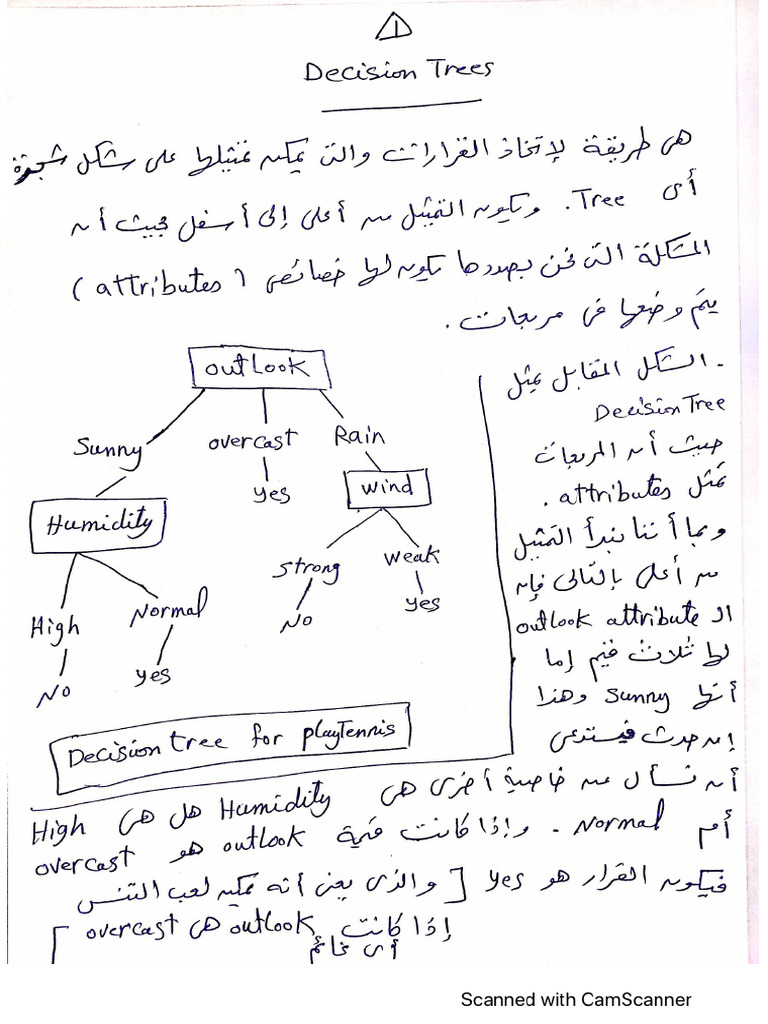 1
Decision Trees
هى طريقة لإتخاذ القرارات والتى يمكن تمثيلها على شكل شجرة
أى Tree. ويكون التمثيل من أعلى إلى أسفل بحيث أن
المشكلة التى نحن بصددها يكون لها خصائص (attributes)
يتم وضعها فى مربعات.
outLook
Sunny overcast Rain
yes
Humidity wind
Strong weak
No yes
High Normal
No yes
Decision tree for playTennis
. الشكل المقابل يمثل
Decision Tree
حيث أن المربعات
تمثل attributes .
وبما أننا نبدأ التمثيل
من أعلى بالتالى فإن
الـ outlook attribute
لها ثلاث قيم إما
أنها sunny وهذا
إن حدث فيستدعى
أن نسأل عن خاصية أخرى هى Humidity هل هى High
أم Normal . وإذا كانت قيمة outlook هو overcast
فيكون القرار هو yes [ والذى يعنى أنه يمكن لعب التنس
إذا كانت outlook هى overcast
أى غائم ]
Scanned with CamScanner